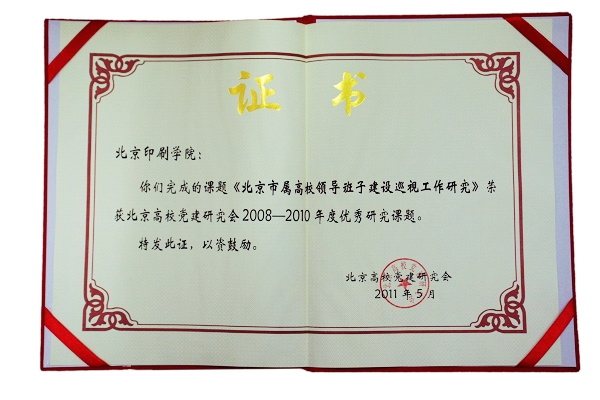 证 书
北京印刷学院：
你们完成的课题《北京市属高校领导班子建设巡视工作研究》荣
获北京高校党建研究会2008—2010年度优秀研究课题。
特发此证，以资鼓励。
北京高校党建研究会
2011年5月